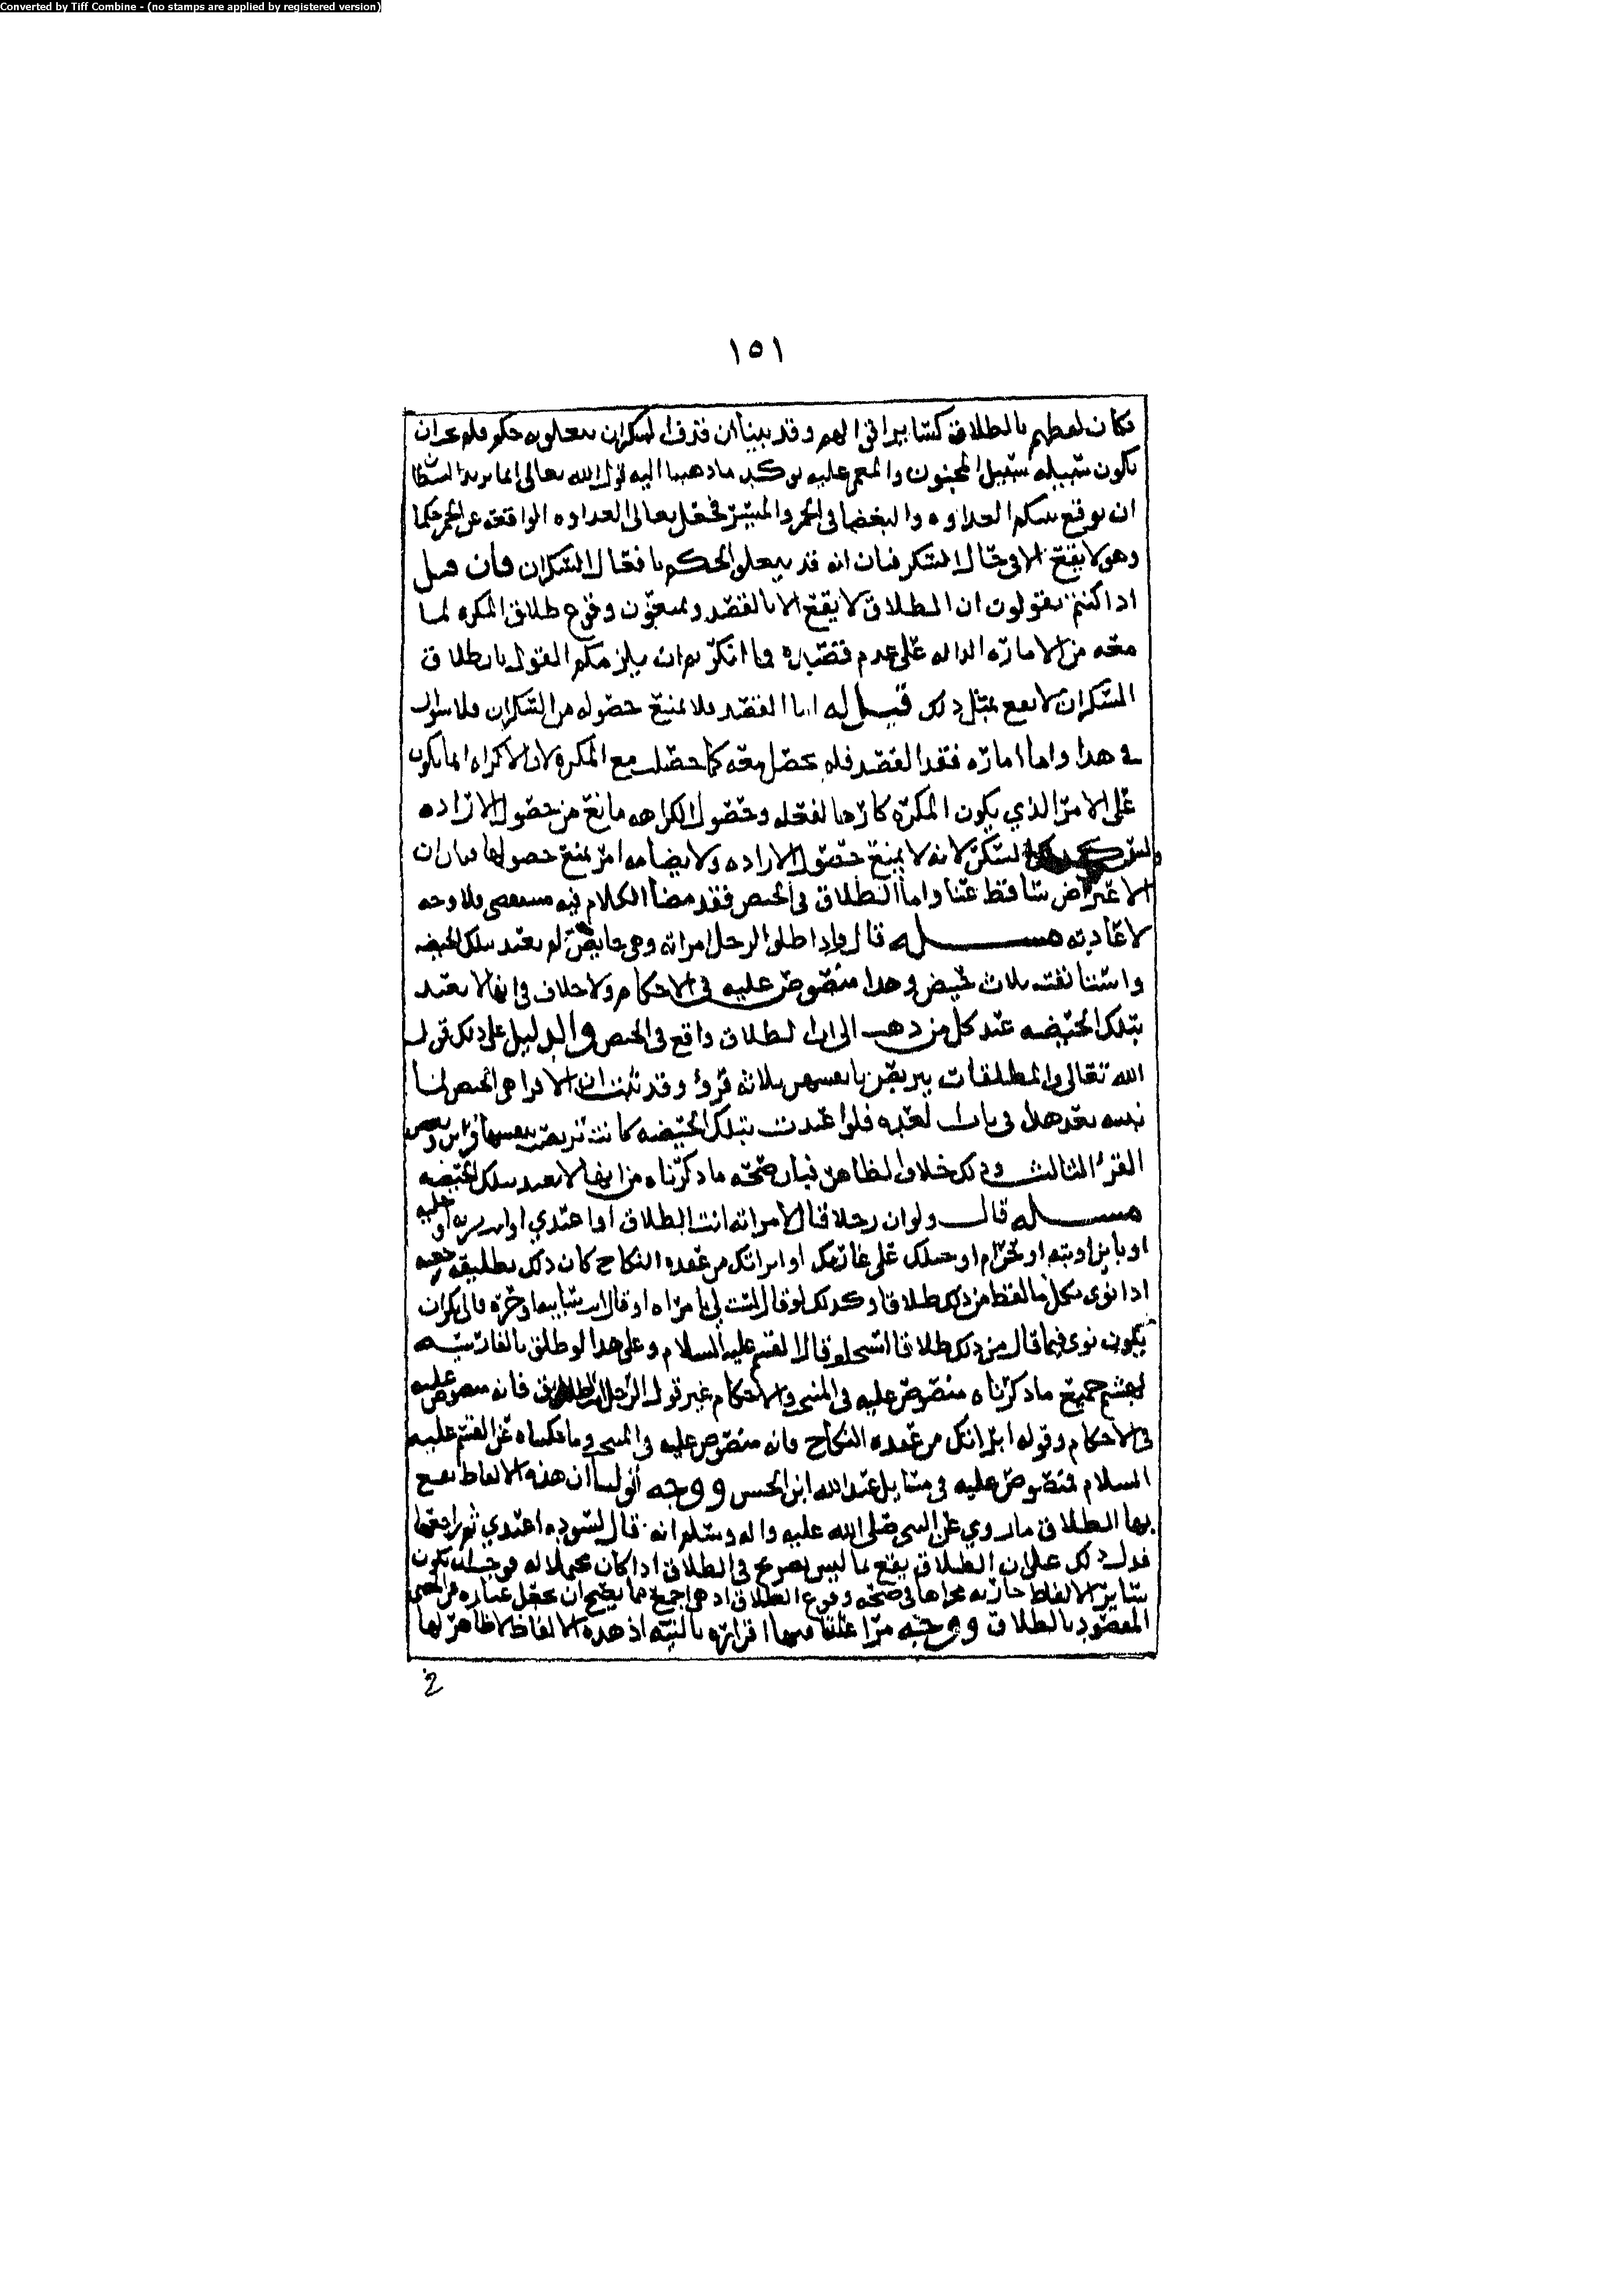 Converted by Tiff Combine - (no stamps are applied by registered version)
١٥١
فكان لفظهم بالطلاق كسائر اقوالهم وقد بينا ان قذف السكران يتعلق به حكم فلم يجز ان
يكون سبيله سبيل المجنون والمغمى عليه يوكد ما ذهبنا اليه قول الله تعالى انما يريد الشيطان
ان يوقع بينكم العداوه والبغضا في الخمر والميسر فجعل تعالى العداوه الواقعه عن الخمر حكما
وهو لا يقع الا في حال السكر فبان انه قد يتعلق الحكم بافعال السكران فان قيل
اذا كنتم تقولون ان الطلاق لا يقع الا بالقصد وتمنعون وقوع طلاق المكره لما
معه من الاماره الداله على عدم قصده فما انكرتم ان يلزمكم القول بان طلاق
السكران لا يقع بمثل ذلك قيل له اما القصد فلا يمتنع حصوله من السكران فلا سوال
في هذا واما اماره فقد القصد فلم يحصل معه كما حصلت مع المكره لان الاكراه انما يكون
على الامر الذي يكون المكره كارها لفعله وحصول الكراهه مانع من حصول الاراده
وليس كذلك السكر لانه لا يمنع حصول الاراده ولا يضامه امر يمنع حصولها فبان ان
الاعتراض ساقط عنا واما الطلاق في الحيض فقد مضا الكلام فيه مستقصى فلا وجه
لاعادته مسله قال واذا طلق الرجل امراته وهي حايض لم يعتد بتلك الحيضه
واستانفت ثلاث حيض وهذا منصوص عليه في الاحكام ولا خلاف في انها لا تعتد
بتلك الحيضه عند كل من ذهب الى ان الطلاق واقع في الحيض والدليل على ذلك قول
الله تعالى والمطلقات يتربصن بانفسهن ثلاثه قروء وقد ثبت ان الاقرا هي الحيض لما
نبينه بعد هذا في باب العده فلو اعتدت بتلك الحيضه كانت تربصت بنفسها قراين وبعض
القرء الثالث وذلك خلاف الظاهر فبان صحه ما ذكرناه من انها لا تعتد بتلك الحيضه
مسله قال ولو ان رجلا قال لامراته انت الطلاق او اعتدي او انت بريه او خليه
او باين او بته او حرام او حبلك على غاربك او ابراتك من عقده النكاح كان ذلك تطليقه رجعيه
اذا نوى بكل ما لفظ من ذلك طلاقا وكذلك لو قال لست لي بامراه او قال انت سايبه او حره فان انكر ان
يكون نوى فيما قال من ذلك طلاقا استحلف قال القسم عليه السلام وعلى هذا لو طلق بالفارسيه
بهشتم جميع ما ذكرناه منصوص عليه في المنتخب والاحكام غير قول الرجل انت الطلاق فانه منصوص عليه
في الاحكام وقوله ابراتك من عقده النكاح فانه منصوص عليه في المنتخب وما حكيناه عن القسم عليه
السلام فمنصوص عليه في مسايل عبد الله ابن الحسن ووجه قولنا ان هذه الالفاظ يقع
بها الطلاق ما روي عن النبي صلى الله عليه واله وسلم انه قال لسوده اعتدي ثم راجعها
فدل ذلك على ان الطلاق يقع بما ليس بصريح في الطلاق اذا كان محتملا له فوجب ان تكون
ساير الالفاظ جاريه مجراها في صحه وقوع الطلاق اذ هي اجمع مما يصح ان يجعل عباره عن المعنى
المقصود بالطلاق ووجبه مراعاتنا فيها اقراره بالنيه اذ هذه الالفاظ لا ظاهر لها
في